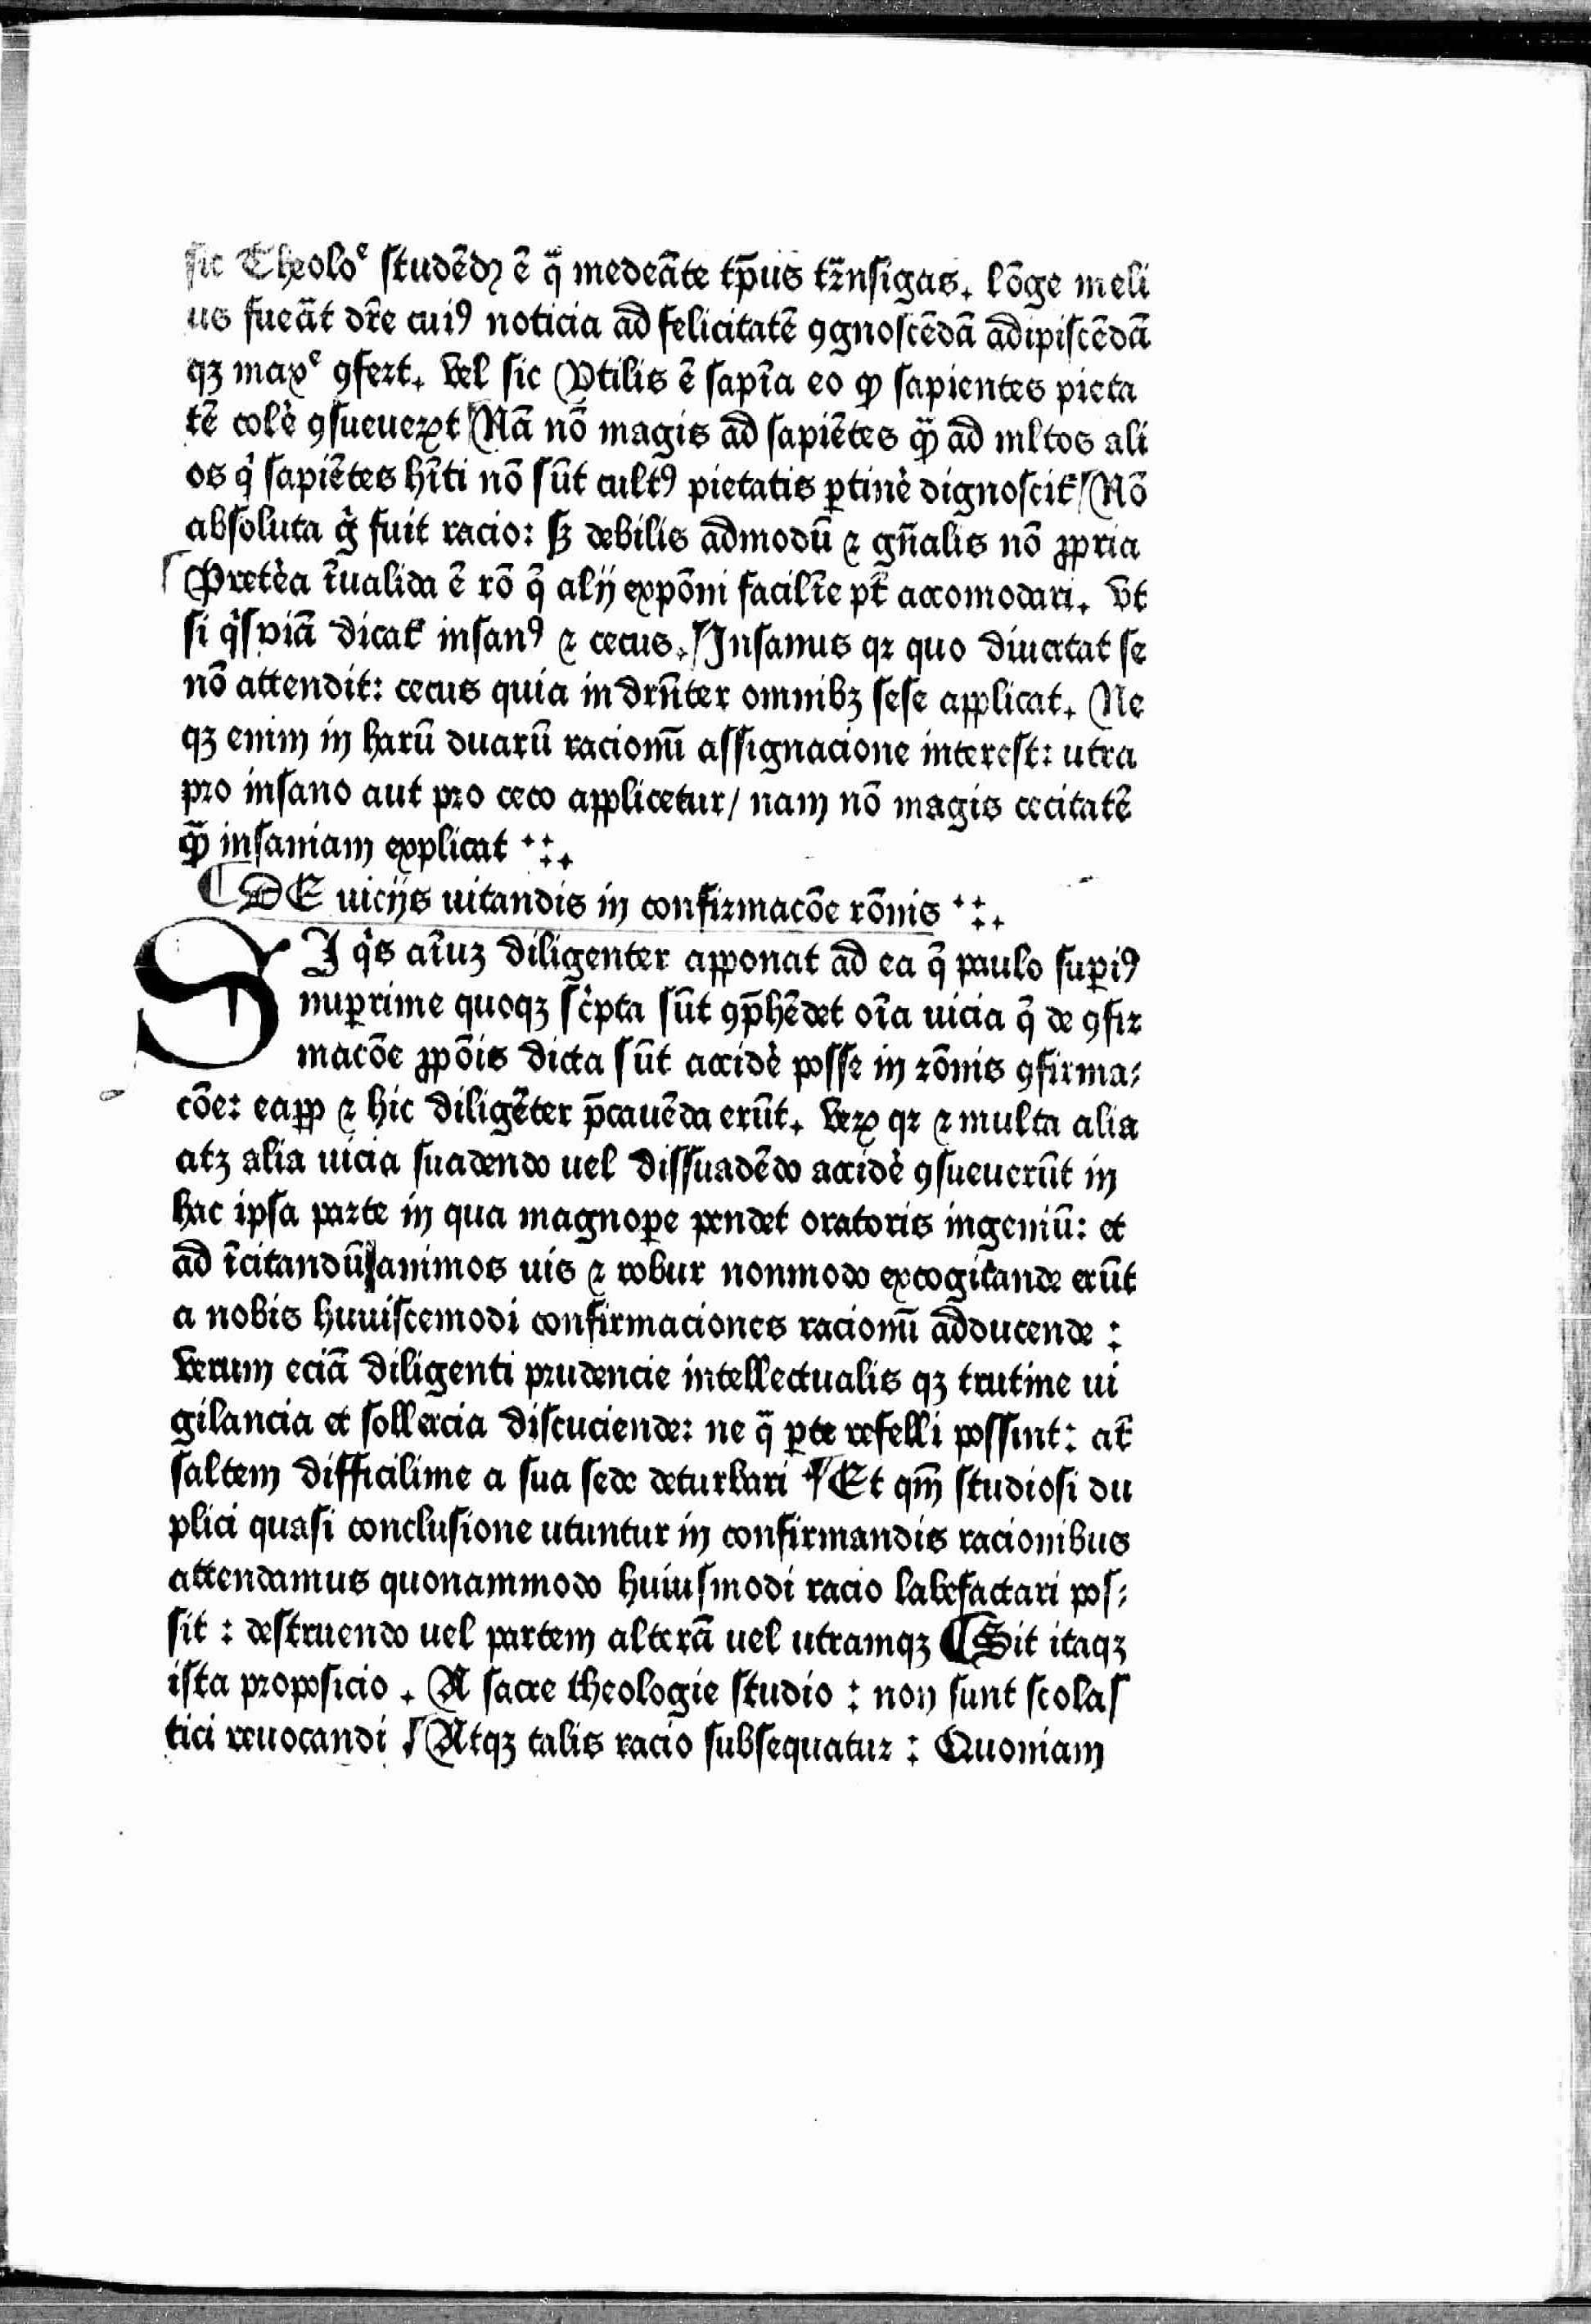 sic Theoloᵉ studēdꝫ ē q̄ medeāte tp̄us trāsigas. lōge meli
us fueāt dr̄e cuiꝰ noticia ad felicitatē ꝯgnoscēdā adipiscēdā
qꝫ maxᵉ ꝯfert. vel sic Utilis ē sapīa eo ꝙ sapientes pieta
tē colē ꝯsueueꝝt Nā nō magis ad sapiētes ꝙ̄ ad mltos ali
os q̇ sapiētes hīti nō sūt cultꝰ pietatis ꝑtinē dignoscit᷑ Nō
absoluta g̊ fuit racio: sꝫ debilis admodū ⁊ gn̄alis nō ꝓpria
Pretēa īualida ē rō q̄ alij expōni facilīe pt̄ accomodari. vt
si q̇spiā dicat᷑ insanꝰ ⁊ cecus. Insanus qꝛ quo diuertat se
nō attendit: cecus quia in drn̄ter omnibꝫ sese applicat. Ne
qꝫ enim in harū duarū racionū assignacione interest: utra
pro insano aut pro ceco applicetur/ nam nō magis cecitatē
ꝙ̄ insaniam explicat
DE uicijs uitandis in confirmacōe rōnis
SI q̇s aīuꝫ diligenter apponat ad ea q̄ paulo suꝑiꝰ
nuꝑrime quoqꝫ sc̍pta sūt ꝯp̄hēdet oīa uicia q̄ de ꝯfir
macōe ꝓpōis dicta sūt accidē posse in rōnis ꝯfirma⸗
cōe: eaꝓp ⁊ hic diligēter p̄cauēda erūt. veꝝ qꝛ ⁊ multa alia
atꝫ alia uicia suadendo uel dissuadēdo accidē ꝯsueuerūt in
hac ipsa parte in qua magnoꝑe pendet oratoris ingeniū: et
ad īcitandū animos uis ⁊ robur nonmodo excogitande erūt
a nobis huuiscemodi confirmaciones racionū adducende :
verum eciā diligenti prudencie intellectualis qꝫ trutine ui
gilancia et sollercia discuciende: ne q̄ ꝑte refelli possint: at᷑
saltem difficilime a sua sede deturbari Et qm̄ studiosi du
plici quasi conclusione utuntur in confirmandis racionibus
attendamus quonammodo huiusmodi racio labefactari pos⸗
sit : destruendo uel partem alterā uel utramqꝫ Sit itaqꝫ
ista proposicio . A sacre theologie studio : non sunt scolas
tici reuocandi Atqꝫ talis racio subsequatur : Quoniam